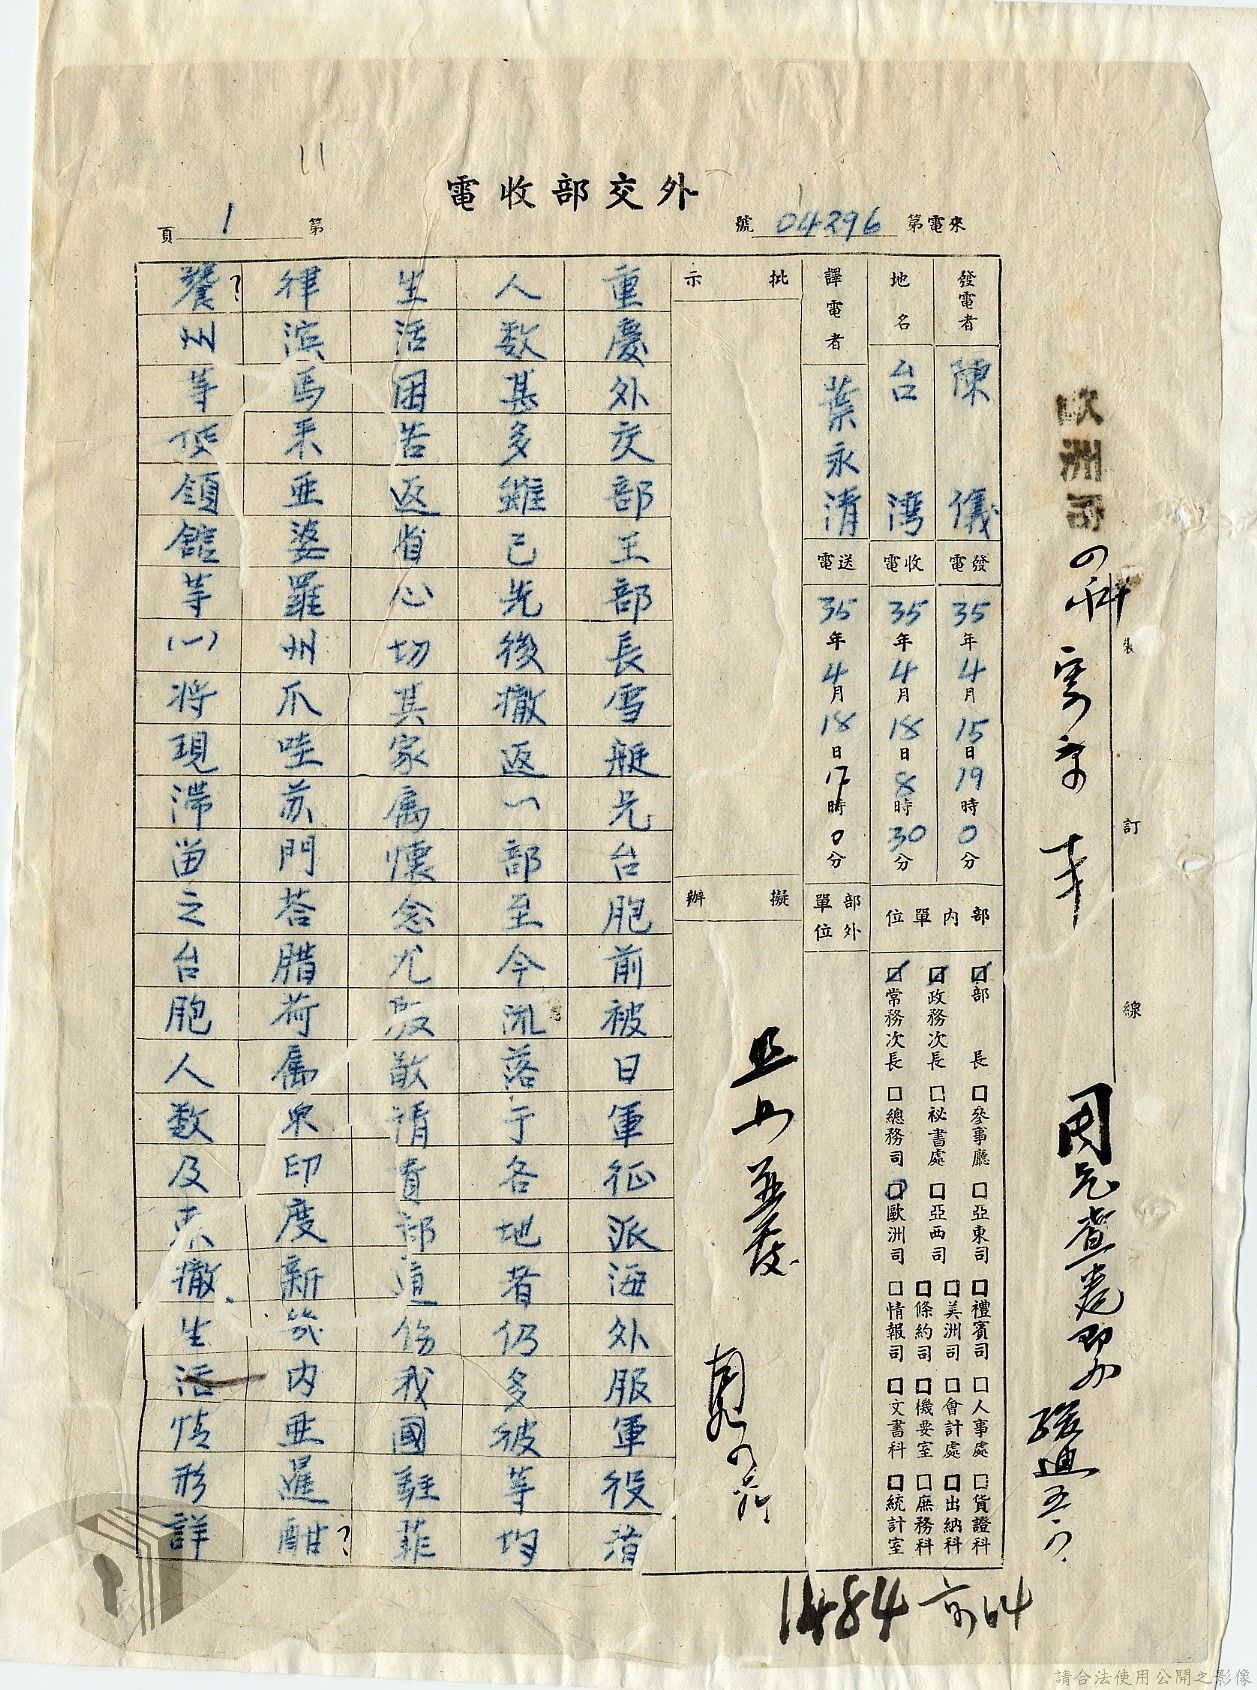 外交部收電
來電第 04296 號
第 1 頁
發電者 陳儀
地名 台灣
譯電者 葉永清
發電 35年4月15日19時0分
收電 35年4月18日8時30分
送電 35年4月18日17時0分
部內單位
☑部長 □參事廳 □亞東司 □禮賓司 □人事處 □貨證科
☑政務次長 □祕書處 □亞西司 □美洲司 □會計處 □出納科
□條約司 □機要室 □庶務科
☑常務次長 □總務司 ☑歐洲司 □情報司 □文書科 □統計室
部外單位
批示
擬辦
重慶外交部王部長雪艇兄台胞前被日軍征派海外服軍役者
人数甚多雖已先後撤返一部至今流落于各地者仍多彼等均
生活困苦返省心切其家属懷念尤殷敬請貴部道伤我國駐菲
律滨馬来亚婆羅州爪哇苏門荅腊荷属東印度新几内亚暹酣?
饔?州等使領館等(一)将現滞留之台胞人数及未撤、生活情形詳
歐洲司
裝
訂
線
1484
請合法使用公開之影像